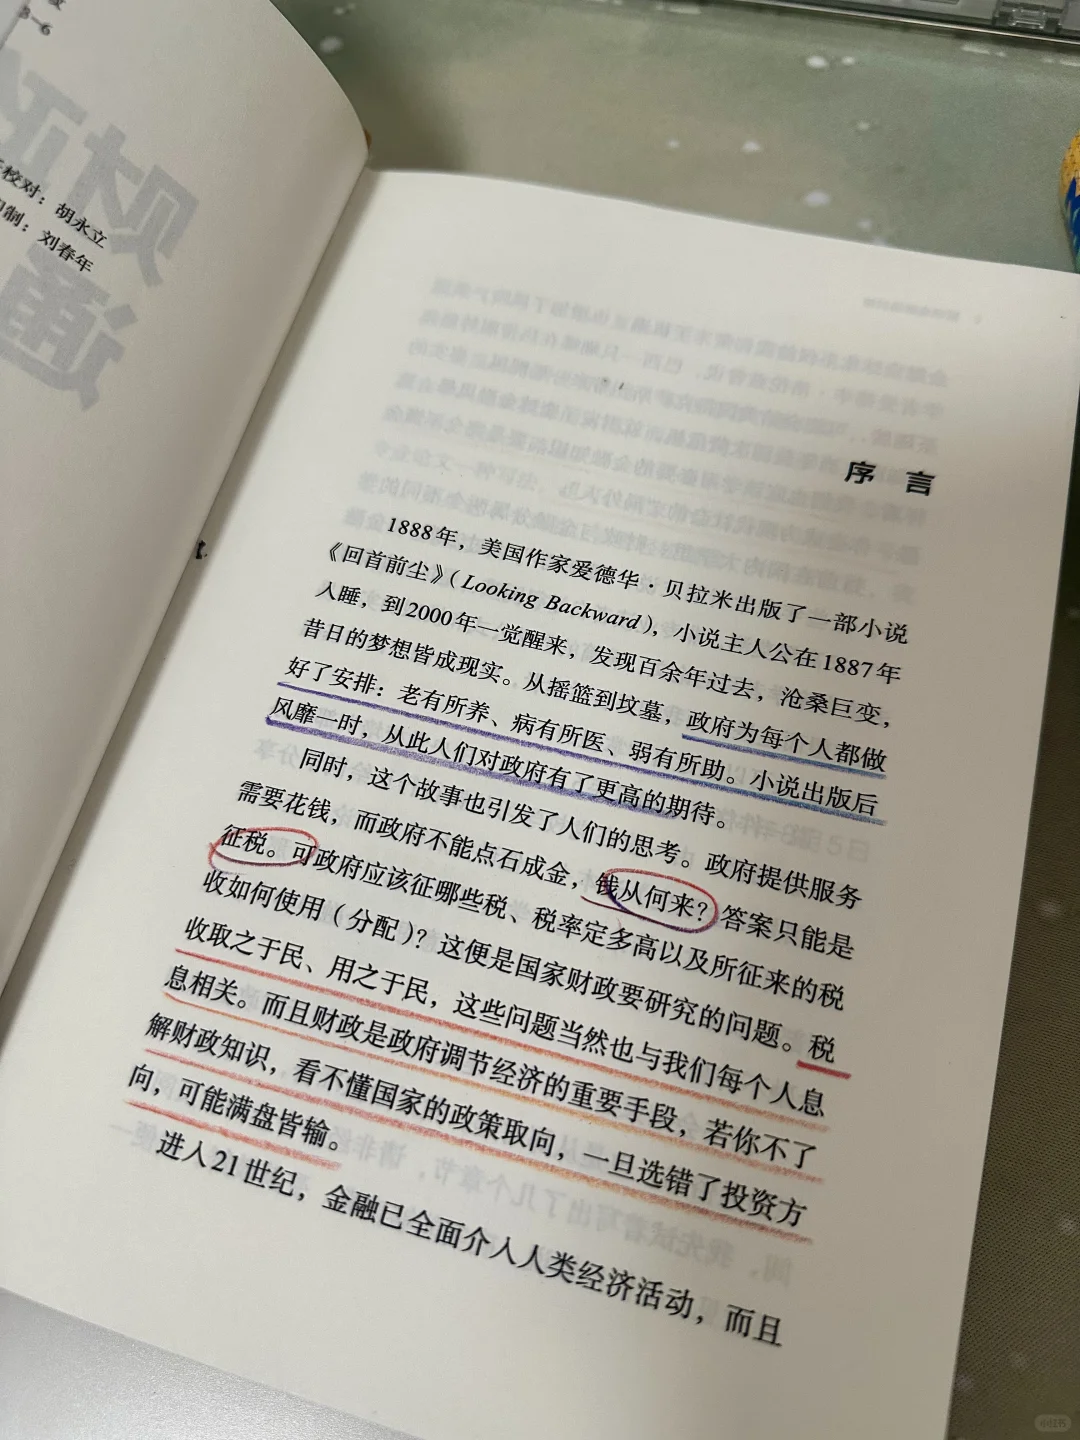 3-6
校对：胡永立
制：刘春年
财政
通
序 言
1888年，美国作家爱德华·贝拉米出版了一部小说
《回首前尘》(Looking Backward)，小说主人公在1887年
入睡，到2000年一觉醒来，发现百余年过去，沧桑巨变，
昔日的梦想皆成现实。从摇篮到坟墓，政府为每个人都做
好了安排：老有所养、病有所医、弱有所助。小说出版后
风靡一时，从此人们对政府有了更高的期待。
同时，这个故事也引发了人们的思考。政府提供服务
需要花钱，而政府不能点石成金，钱从何来？答案只能是
征税。可政府应该征哪些税、税率定多高以及所征来的税
收如何使用（分配）？这便是国家财政要研究的问题。税
收取之于民、用之于民，这些问题当然也与我们每个人息
息相关。而且财政是政府调节经济的重要手段，若你不了
解财政知识，看不懂国家的政策取向，一旦选错了投资方
向，可能满盘皆输。
进入21世纪，金融已全面介入人类经济活动，而且
小红书